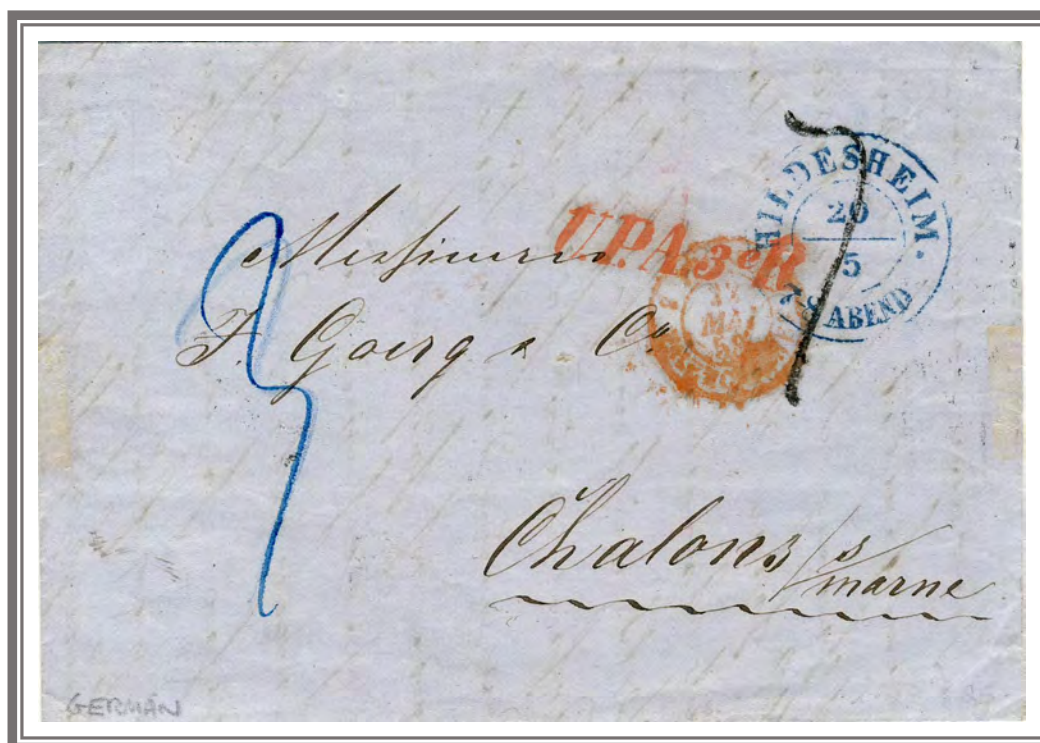 HILDESHEIM.
20
5
7-8 ABEND
U.P.A. 3e R
MAI
Messieurs
J. Goerg & Co
Chalons s/marne
3
7
GERMAN